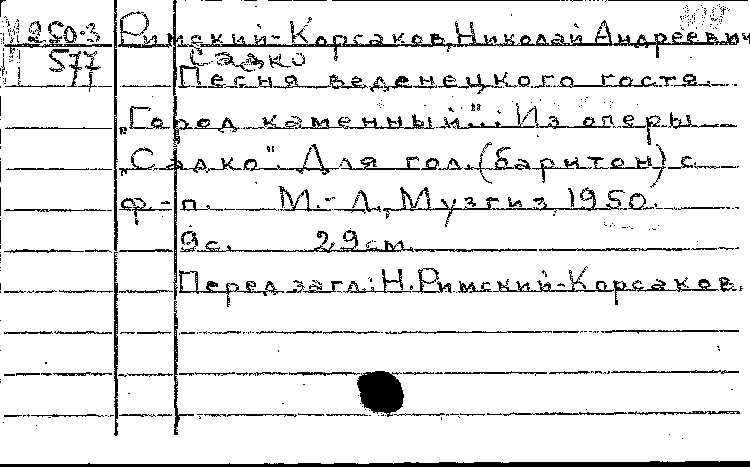 М 250-3 Римский-Корсаков, Николай Андреевич
577 Садко
Песня веденецкого гостя.
„Город каменный": Из оперы
„Садко". Для гол. (баритон) с
ф-п. М.-Л., Музгиз, 1950.
9с. 29см.
Перед загл.: Н. Римский-Корсаков.